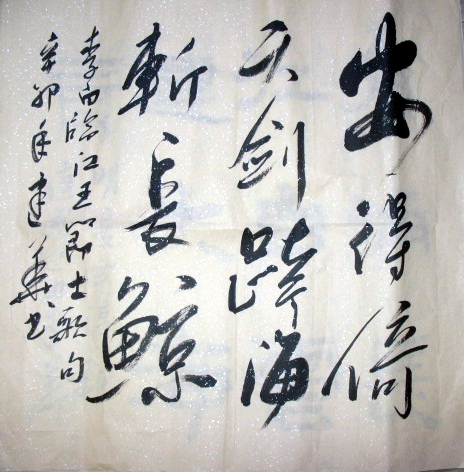 安得倚
天剑跨海
斩长鲸
李白临江王节士歌句
辛卯年建华书